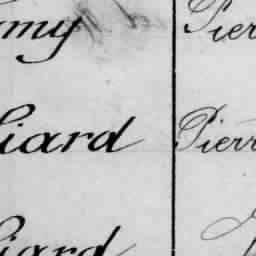 my Pier
iard Pierr
iard